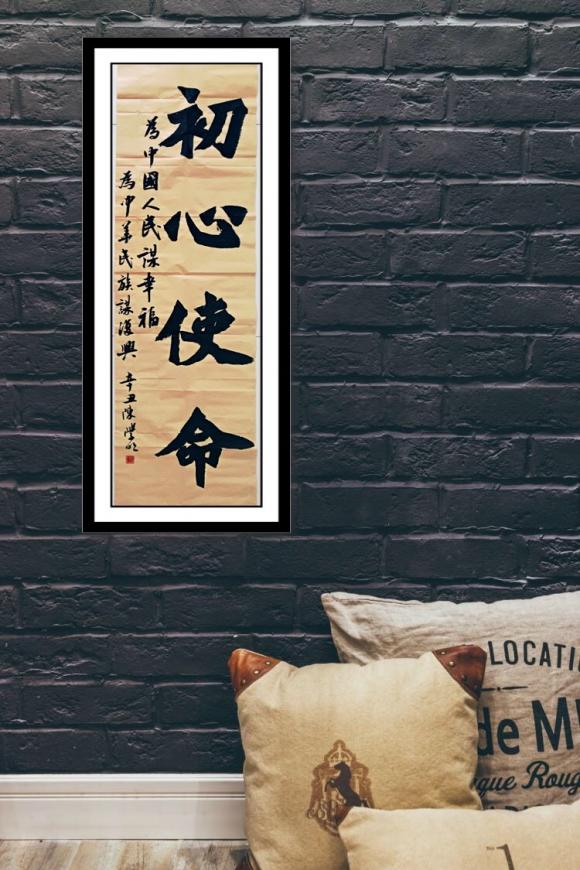 初心使命
為中國人民謀幸福
為中華民族謀復興
辛丑陳學
LOCATI
de M
que Roug
1